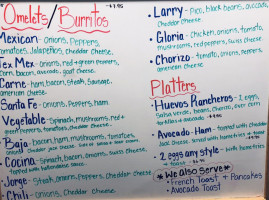 Omelets/Burritos
Mexican - onions, Peppers,
tomatoes, Jalapeños, cheddar cheese.
Tex Mex - onions, red + green peppers,
corn, bacon, avocado,
Carne - ham, bacon, steak, Sausage,
american cheese.
Santa Fe - onions, Peppers, ham
Vegetable - Spinach, mushrooms, red +
green peppers, tomatoes, cheddar cheese.
Baja - bacon, ham, mushrooms, tomatoes,
Cocina - Spinach, bacon, onions, swiss cheese.
Jorge - Steak, onions, Peppers, cheddar cheese.
Chili - onions, Cheddar cheese.
Larry - Pico, black beans, avocado,
Cheddar cheese.
Gloria - Chicken, onions, tomato,
mushrooms, red peppers, swiss cheese
Chorizo - tomato, onions, peppers,
american cheese
Platters
Huevos Rancheros - 2 eggs,
Salsa verde, beans, cheese, over corn
tortillas + avocado.
Avocado - Ham - topped with cheddar
2 eggs any style - toast
*We also serve*
- French Toast, + Pancakes
- Avocado Toast